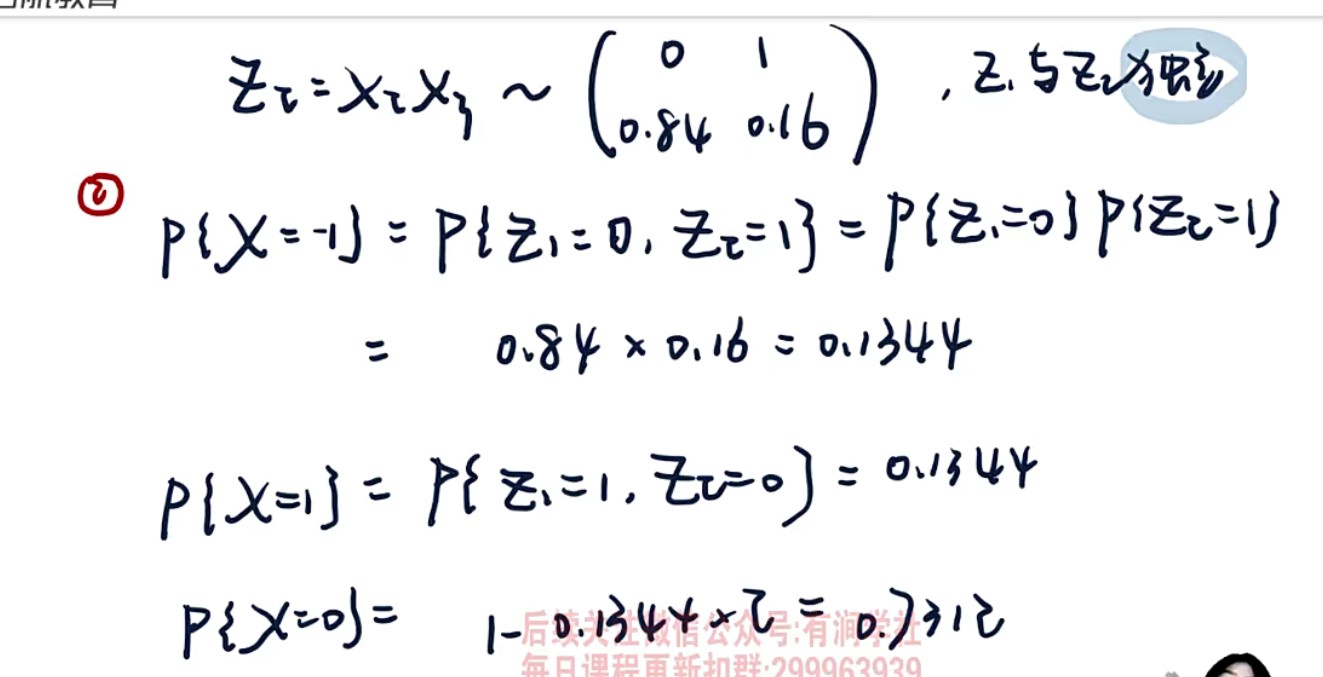 Z₂=X₂X₃ ~ ( 0 1
0.84 0.16 ) , Z₁与Z₂为独立
② P{X=-1} = P{Z₁=0, Z₂=1} = P{Z₁=0}P{Z₂=1}
= 0.84 × 0.16 = 0.1344
P{X=1} = P{Z₁=1, Z₂=0} = 0.1344
P{X=0}= 1-0.1344×2 = 0.7312
后续关注微信公众号:有润学社
每日课程更新扣群:299963939